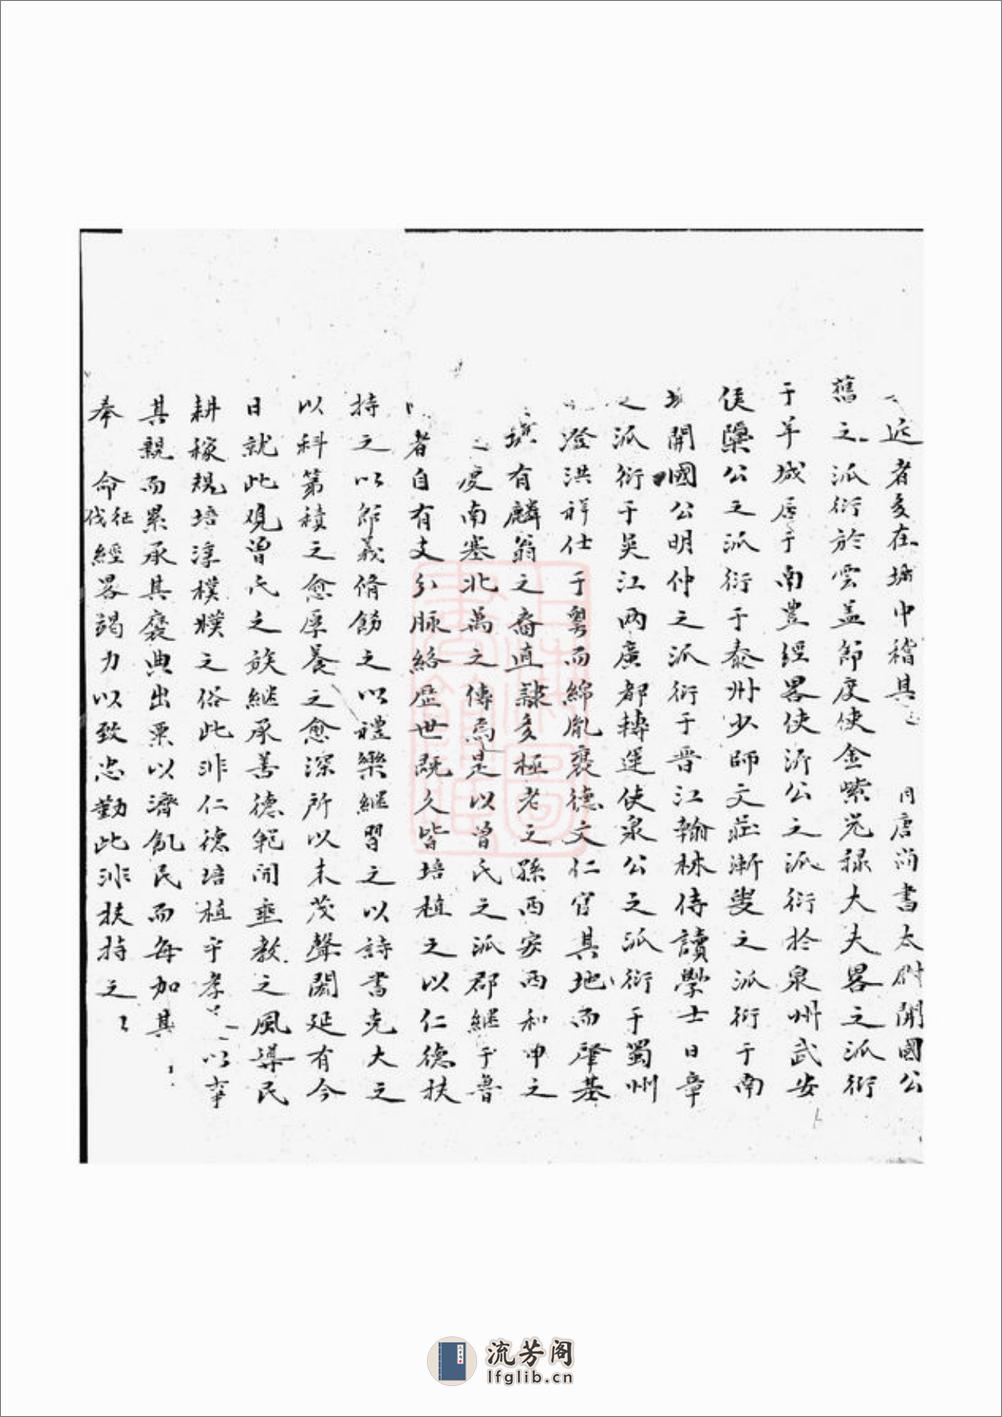 近者多在城中稽其 同唐尚書太尉開國公
舊之派衍於雲盖節度使金紫光祿大夫畧之派衍
于羊城居于南豐經畧使沂公之派衍於泉州武安
侯槩公之派衍于泰州少師文莊漸叟之派衍于南
開國公明仲之派衍于晋江翰林侍讀學士日章
之派衍于吳江兩廣都轉運使泉公之派衍于蜀州
澄洪祥仕于粵而綿胤褒德文仁官其地而肇基
有麟翁之裔直隸多極老之孫西安西和申之
之度南塞北萬之傳焉是以曾氏之派郡継于魯
者自有支分脉絡歷世既久皆培植之以仁德扶
持之以節義脩飭之以禮樂継習之以詩書克大之
以科第積之愈厚養之愈深所以末茂聲閎延有今
日就此觀曾氏之族継承善德範间垂教之風導民
耕稼親培淳樸之俗此非仁德培植乎孝 以事
其親而累承其褒典出粟以濟飢民而每加其
奉 命征伐經畧竭力以致忠勤此非扶持之
流芳阁
lfglib.cn